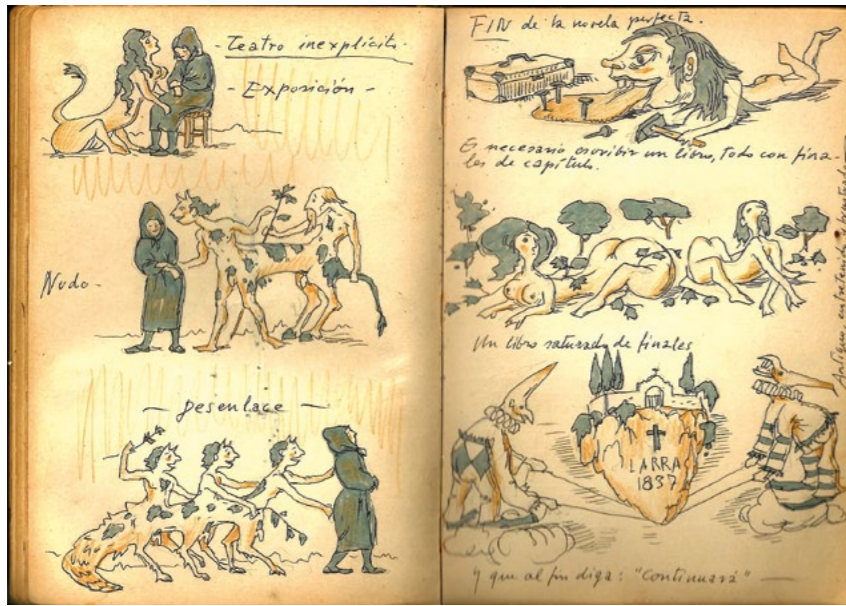 - Teatro inexplícito.
- Exposición -
Nudo -
- Desenlace -
FIN de la novela perfecta.
Es necesario escribir un libro, todo con fina-
les de capítulo.
Un libro saturado de finales
LARRA
1837
y que al fin diga: "Continuará" -